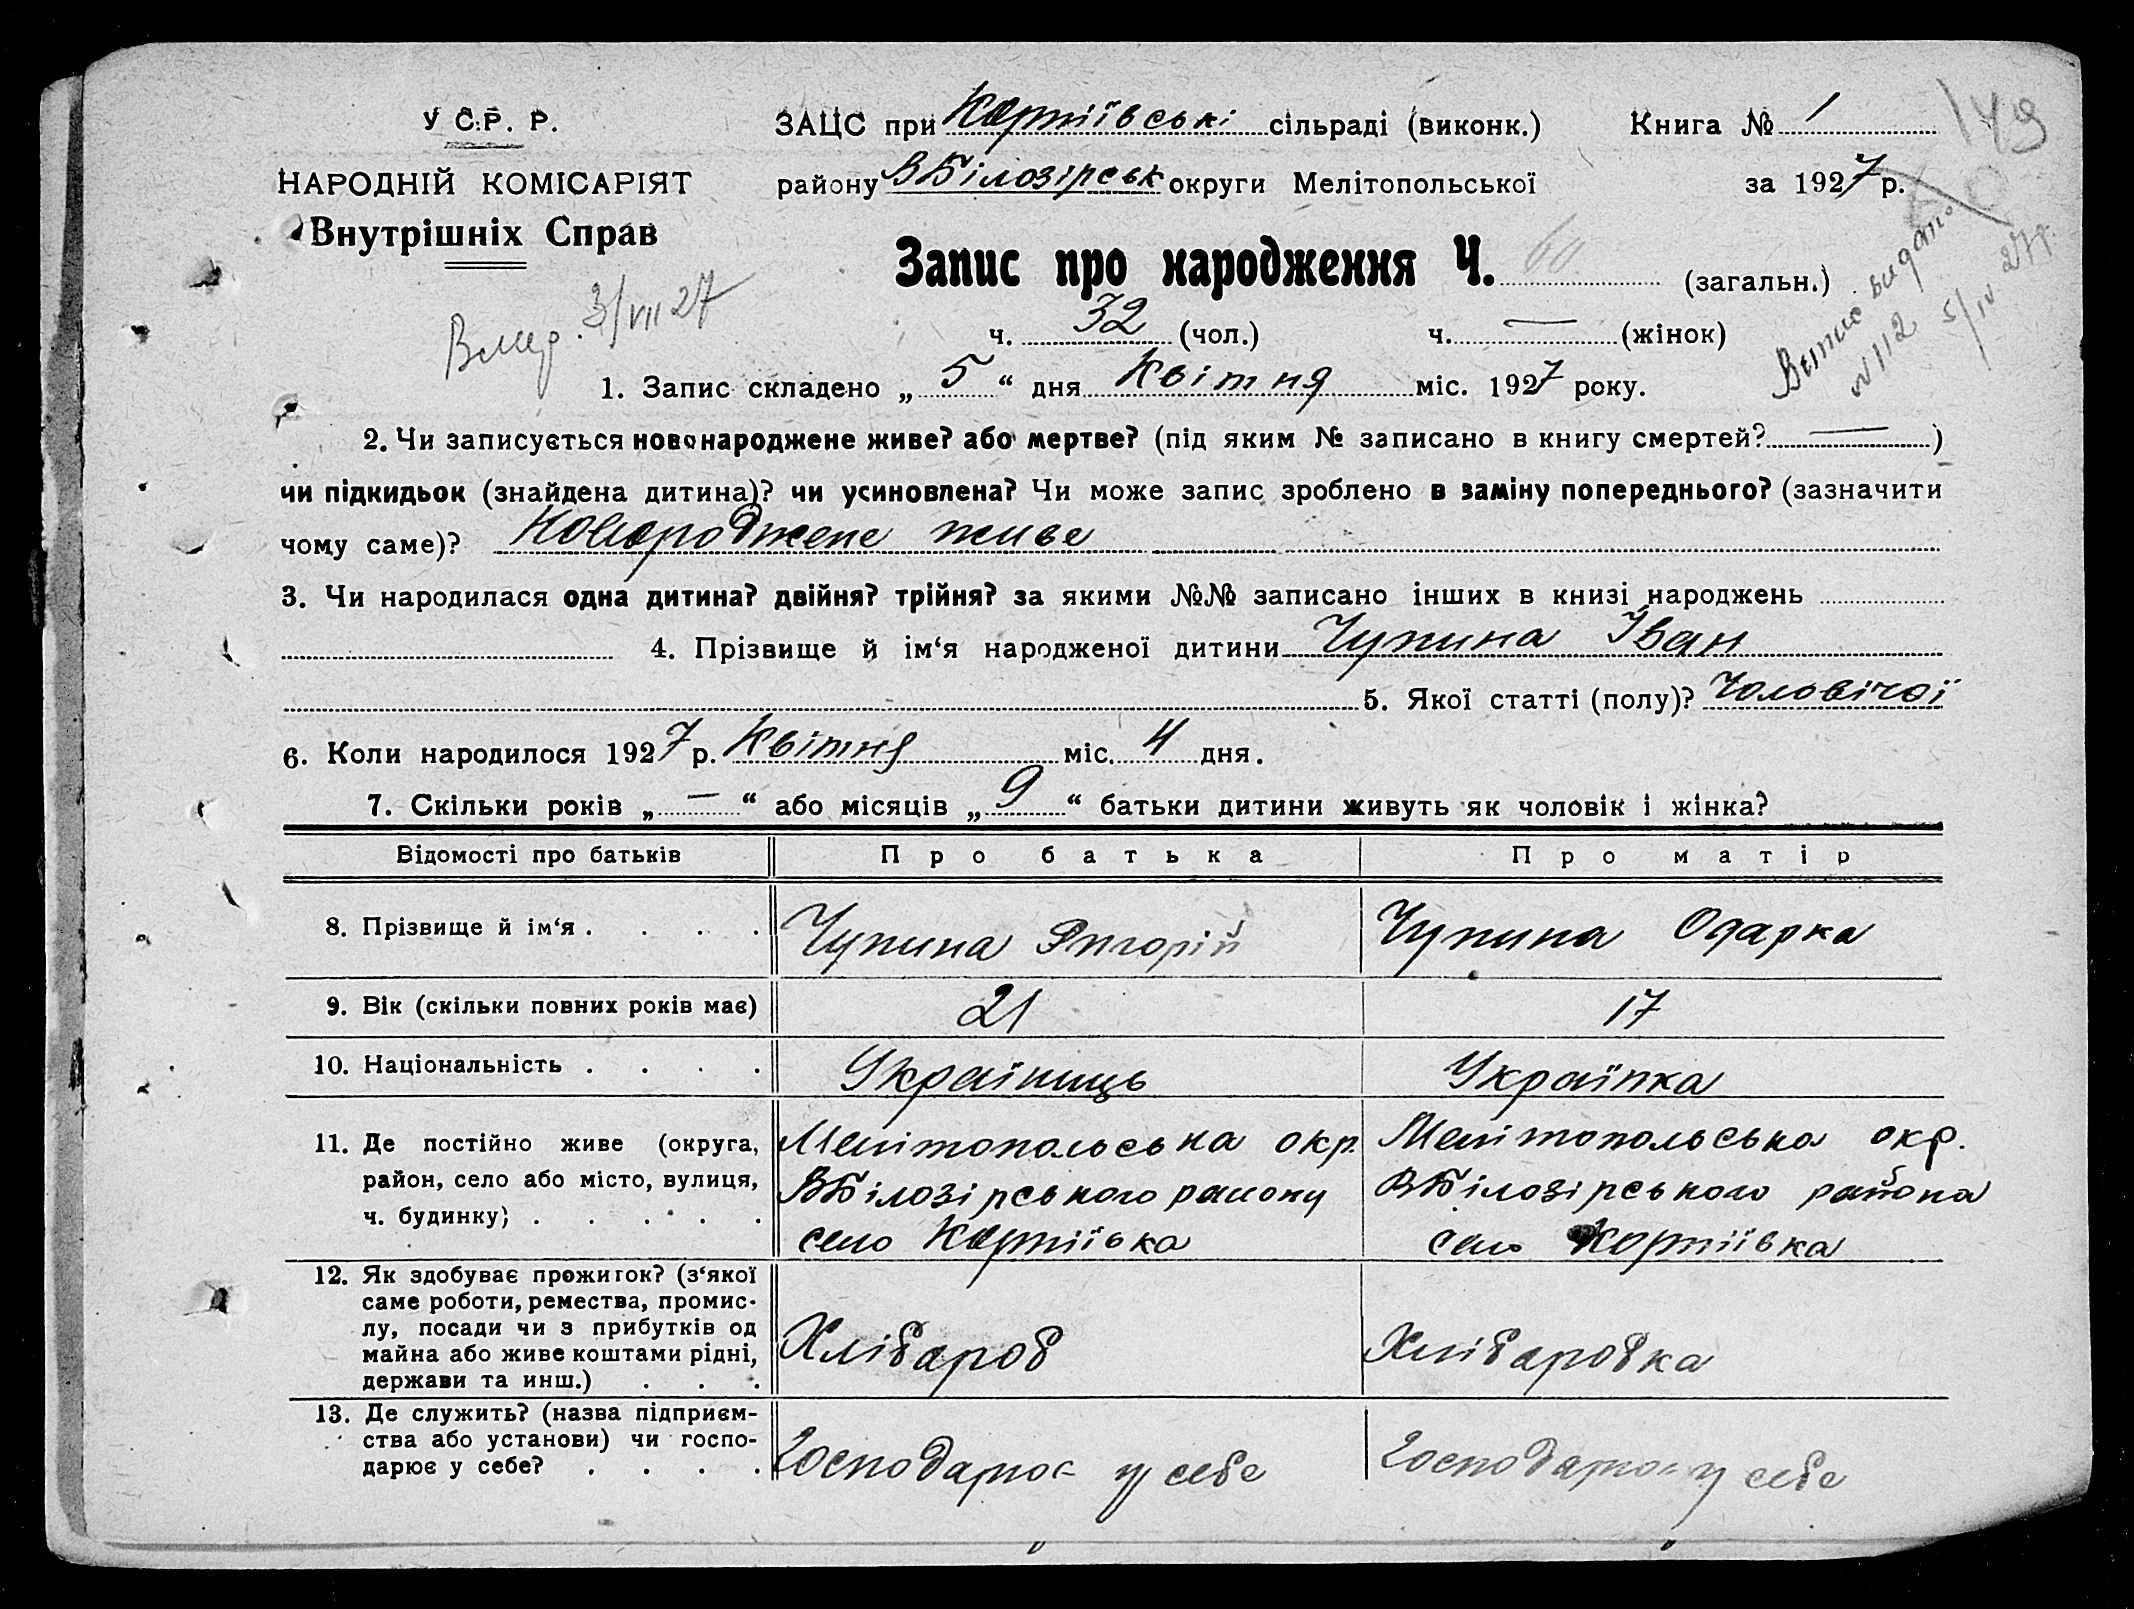 У С.Р. Р.
НАРОДНІЙ КОМІСАРІЯТ
Внутрішніх Справ
ЗАЦС при Карпіївські сільраді (виконк.)
району ВБілозірськ округи Мелітопольської
Книга № 1
149
за 1927 р.
Запис про народження Ч. 60 (загальн.)
Випис видано
№112 5/IV 27р.
Вмер. 3/VII 27
ч. 32 (чол.) ч. — (жінок)
1. Запис складено „ 5 “ дня Квітня міс. 1927 року.
2. Чи записується новонароджене живе? або мертве? (під яким № записано в книгу смертей? — )
чи підкидьок (знайдена дитина)? чи усиновлена? Чи може запис зроблено в заміну попереднього? (зазначити
чому саме)? Новороджене живе
3. Чи народилася одна дитина? двійня? трійня? за якими №№ записано інших в книзі народжень
4. Прізвище й ім‘я народженої дитини Чупина Іван
5. Якої статті (полу)? Чоловічої
6. Коли народилося 1927 р. Квітня міс. 4 дня.
7. Скільки років „ — “ або місяців „ 9 “ батьки дитини живуть як чоловік і жінка?
Відомості про батьків Про батька Про матір
8. Прізвище й ім‘я . . . . Чупина Григорій Чупина Одарка
9. Вік (скільки повних років має) 21 17
10. Національність . . . . Україниць Українка
11. Де постійно живе (округа, Мелітопольська окр. Мелітопольська окр.
район, село або місто, вулиця, ВБілозірського району ВБілозірського района
ч. будинку) . . . . . село Карпіївка село Корпіївка
12. Як здобуває прожиток? (з‘якої
саме роботи, ремества, промис-
лу, посади чи з прибутків од
майна або живе коштами рідні, Хлібароб Хлібаробка
держави та инш.) . . .
13. Де служить? (назва підприєм-
ства або установи) чи госпо-
дарює у себе? . . . . Господарює у себе Господарює у себе